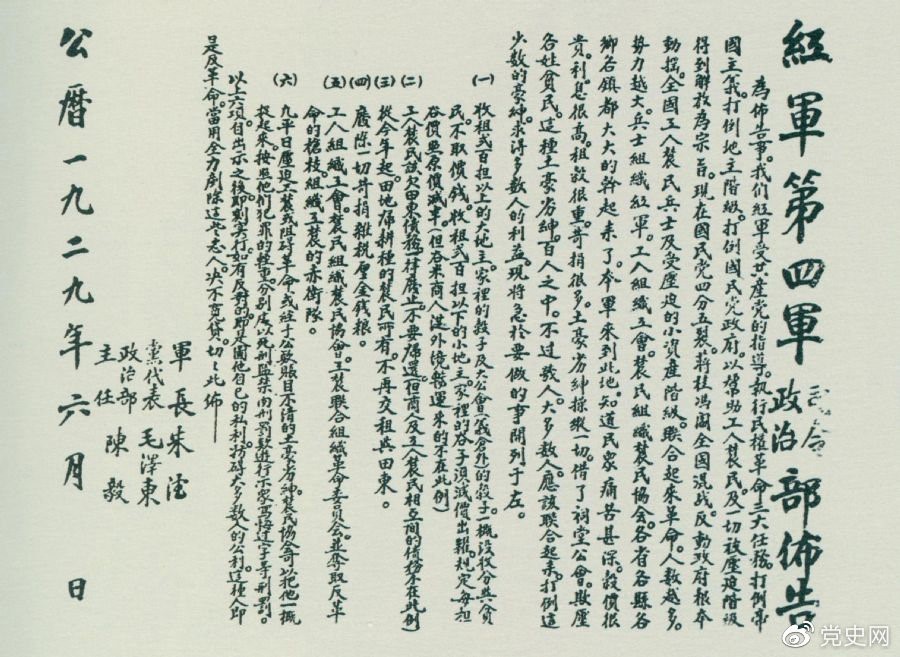 紅軍第四軍司令政治部佈告
為佈告事。我們紅軍受共産党的指導。執行民權革命三大任務。打倒帝
國主義。打倒地主階級。打倒國民党政府。以幫助工人農民及一切被壓迫階級
得到解放為宗旨。現在國民党四分五裂。蔣桂馮閻全國混战。反動政府根本
動搖。全國工人農民兵士及受壓迫的小資產階級。联合起來革命。人數越多。
势力越大。兵士組織紅軍。工人組織工會。農民組織農民協会。各省各縣各
鄉各镇都大大的幹起來了。本軍來到此地。知道民眾痛苦甚深。穀價很
貴。利息很高。租穀很重。苛捐很多。土豪劣紳操縱一切。借了祠堂公會。欺壓
各姓貧民。這種土豪劣紳。百人之中。不过数人。大多数人。應該联合起來。打倒這
少数的豪紳。求得多数人的利益。現將急於要做的事開列于左。
(一) 收租弍百担以上的大地主。家裡的穀子及大公會(義倉外)的穀子。一概没收分與貧
民。不取價钱。收租弍百担以下的小地主。家裡的谷子。須減價出糶。規定每担
谷價照原價減半。(但谷米商人從外境辦運來的不在此例)
(二) 工人農民該欠田東債務。一律廢止。不要歸還。(但商人及工人農民相互間的債務不在此例)
(三) 從今年起。田地歸耕種的農民所有。不再交租與田東。
(四) 廢除一切苛捐雜税厘金钱粮。
(五) 工人組織工會。農民組織農民協會。工農联合組織革命委員会。並奪取反革
命的槍枝組織工農的赤衛隊。
(六) 凡平日壓迫工農。或阻碍革命。或经手公款賬目不清的土豪劣紳。農民協会可以把他一概
捉起來。按照他们犯罪的輕重。分别处以死刑監禁肉刑罰款遊行示眾寫悔过字等刑罰。
以上六項。自出示之後。即刻实行。如有反對的。即是圖他自己的私利。妨碍大多数人的公利。這種人即
是反革命。當用全力剷除這些恶人。决不寬貸。切切此佈
軍長 朱德
黨代表 毛澤東
政治部主任 陳毅
公曆一九二九年六月 日
党史网